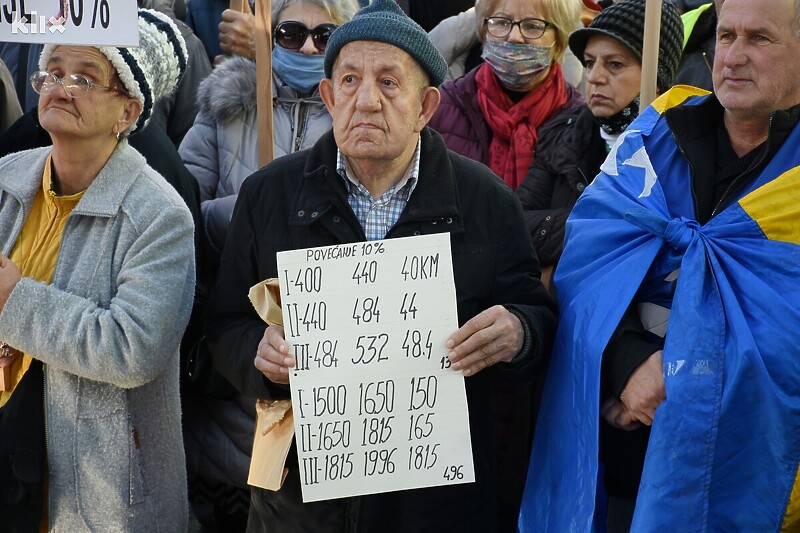 klix
POVEĆANJE 10%
I-400 440 40KM
II-440 484 44
III-484 532 48.4
I-1500 1650 150
II-1650 1815 165
III-1815 1996 181,5
496